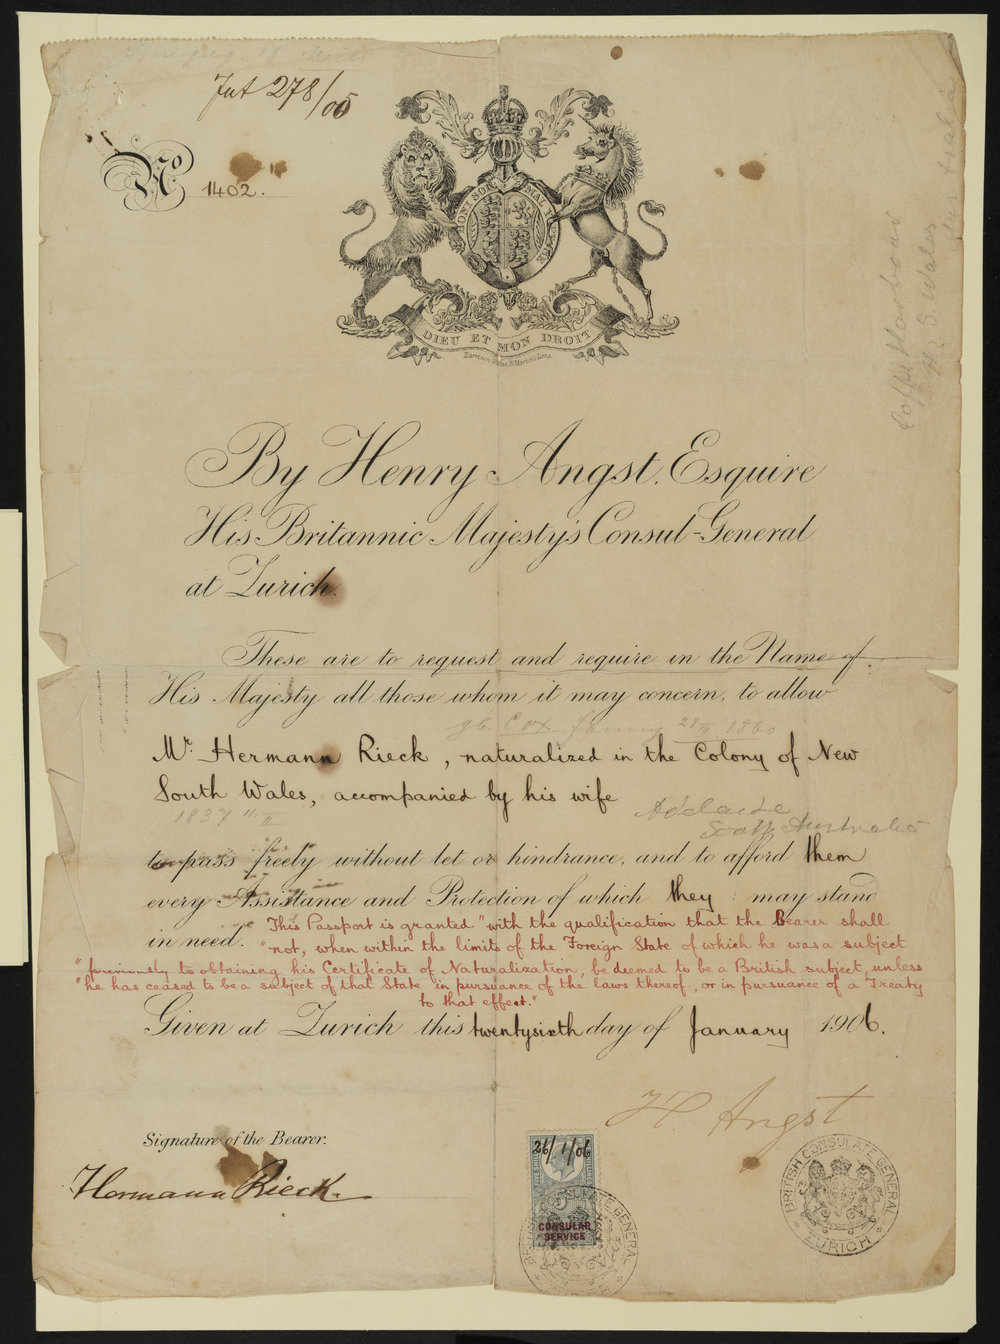 278/05
No
1402.
DIEU ET MON DROIT
Coffs Harbour
N. S. Wales
Australia
By Henry Angst, Esquire
His Britannic Majesty's Consul-General
at Zurich.
These are to request and require in the Name of
His Majesty all those whom it may concern, to allow
gb. Cox Fanny 28 1860
Mr. Hermann Rieck, naturalized in the Colony of New
South Wales, accompanied by his wife
Adelaide
1837 11 II
South Australia
to pass freely without let or hindrance, and to afford them
every Assistance and Protection of which they may stand
in need.
This Passport is granted "with the qualification that the Bearer shall
"not, when within the limits of the Foreign State of which he was a subject
"previously to obtaining his Certificate of Naturalization, be deemed to be a British subject, unless
"he has ceased to be a subject of that State in pursuance of the laws thereof, or in pursuance of a Treaty
to that effect."
Given at Zurich this twentysixth day of January 1906.
H. Angst
Signature of the Bearer.
Hermann Rieck
26/1/06
CONSULAR
SERVICE
BRITISH CONSULATE GENERAL
ZURICH